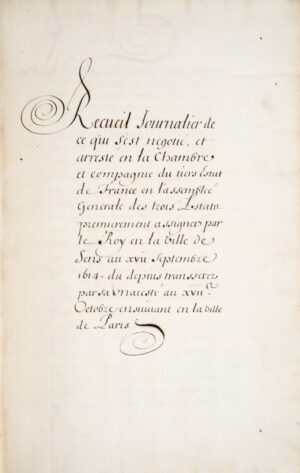 Recueil Journalier de
ce qui s'est negotié, et
arresté en la Chambre
et compagnie du tiers Estat
de France en l'assemblée
Generale des trois Estats
premierement assignez par
le Roy en la ville de
Sens au xvii Septembre
1614. du depuis transferez
par sa Maiesté au xvii.e
Octobre ensuivant en la ville
de Paris